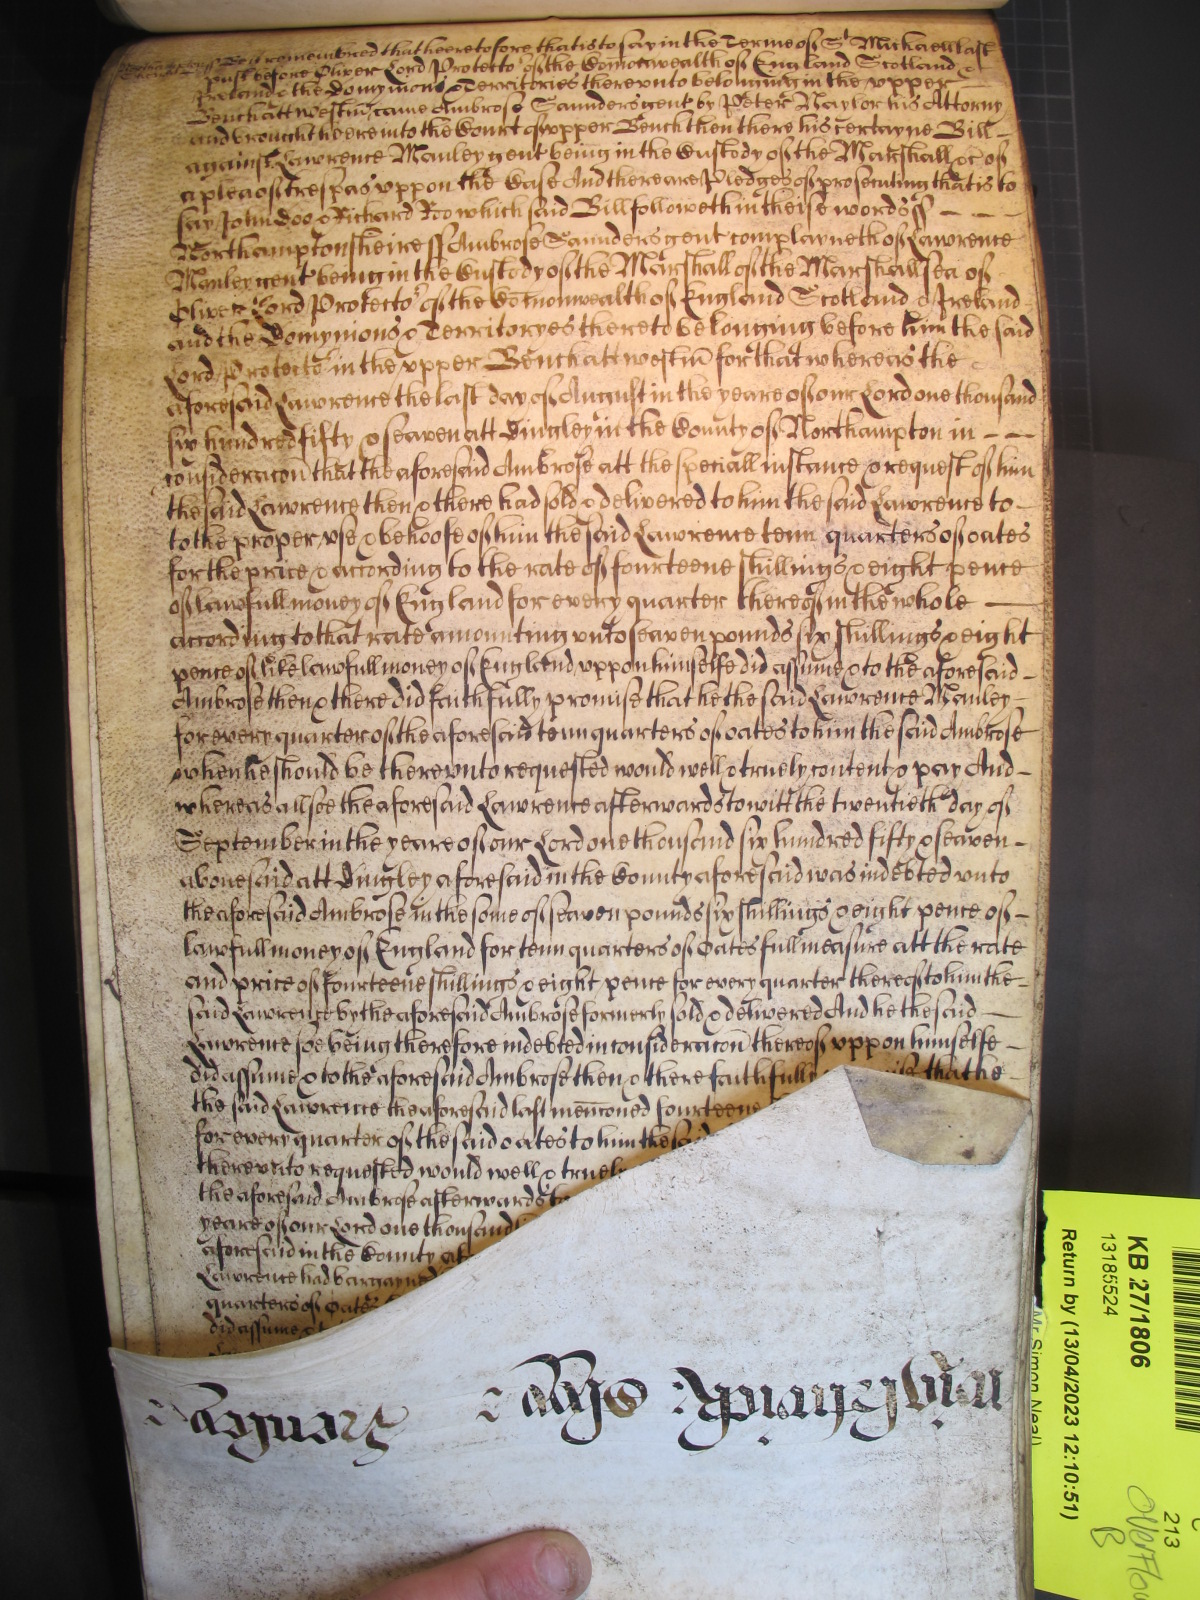 Bee it remembred that heretofore that is to say in the Terme of St Michaell last
past before Oliver Lord Protector of the Comonwealth of England Scotland &
Ireland & the Dominions & Territories therevnto belonging in the vpper
Bench att Westm came Ambrose Saunders gent by Peter Naylor his Attorny
and brought heere into the Court of vpper Bench then there his certayne Bill
against Lawrence Manley gent being in the Custody of the Marshall &c of
a plea of trespas vppon the Case And there are Pledges of prosecuting that is to
say John Doo & Richard Roo which said Bill followeth in theise words ss
Northamptonsheire ss Ambrose Saunders gent complayneth of Lawrence
Manley gent being in the Custody of the Marshall of the Marshallsea of
Oliver Lord Protector of the Comonwealth of England Scotland & Ireland
and the Domynions & Territoryes thereto belonging before him the said
Lord Protector in the vpper Bench att westm for that whereas the
aforesaid Lawrence the last day of August in the yeare of our Lord one thousand
six hundred fifty & seaven att Dingley in the County of Northampton in
consideracon that the aforesaid Ambrose att the speciall instance & request of him
the said Lawrence then & there had sold & delivered to him the said Lawrence to
to the proper vse & behoofe of him the said Lawrence tenn quarters of oates
for the price & according to the rate of fourteene shillings & eight pence
of lawfull money of England for every quarter thereof in the whole
according to that rate amounting vnto seaven pounds six shillings & eight
pence of like lawfull money of England vppon himselfe did assume & to the aforesaid
Ambrose then & there did faithfully promise that he the said Lawrence Manley
for every quarter of the aforesaid tenn quarters of oates to him the said Ambrose
when he should be therevnto requested would well & truely content & pay And
whereas allsoe the aforesaid Lawrence afterwards to witt the twentieth day of
September in the yeare of our Lord one thousand six hundred fifty & seaven
abouesaid att Dingley aforesaid in the County aforesaid was indebted vnto
the aforesaid Ambrose in the some of seaven pounds six shillings & eight pence of
lawfull money of England for tenn quarters of Oates full measure att the rate
and price of fourteene shillings & eight pence for every quarter thereof to him the
said Lawrence by the aforesaid Ambrose formerly sold & delivered And he the said
Lawrence soe being therefore indebted in consideracon thereof vppon himselfe
did assume & to the aforesaid Ambrose then & there faithfully that he
the said Lawrence the aforesaid last mencioned fourteene
for every quarter of the said oates to him the said
therevnto requested would well & truely
the aforesaid Ambrose afterwards to
yeare of our Lord one thousand
aforesaid in the County af
Lawrence had bargayned
quarters of Oates
did assume & t
KB 27/1806
13185524
Return by (13/04/2023 12:10:51)
Mr Simon Neal)
213
Overflow
B